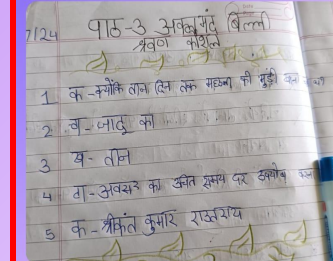 7/24 पाठ-3 अक्लमंद बिल्ली
श्रवण कौशल
1 क - क्योंकि तीन दिन तक मछली की मुंडी
2 ख - जादू का
3 ख - तीन
4 ग - अवसर का उचित समय पर उपयोग करना
5 क - श्रीकांत कुमार राउतराय